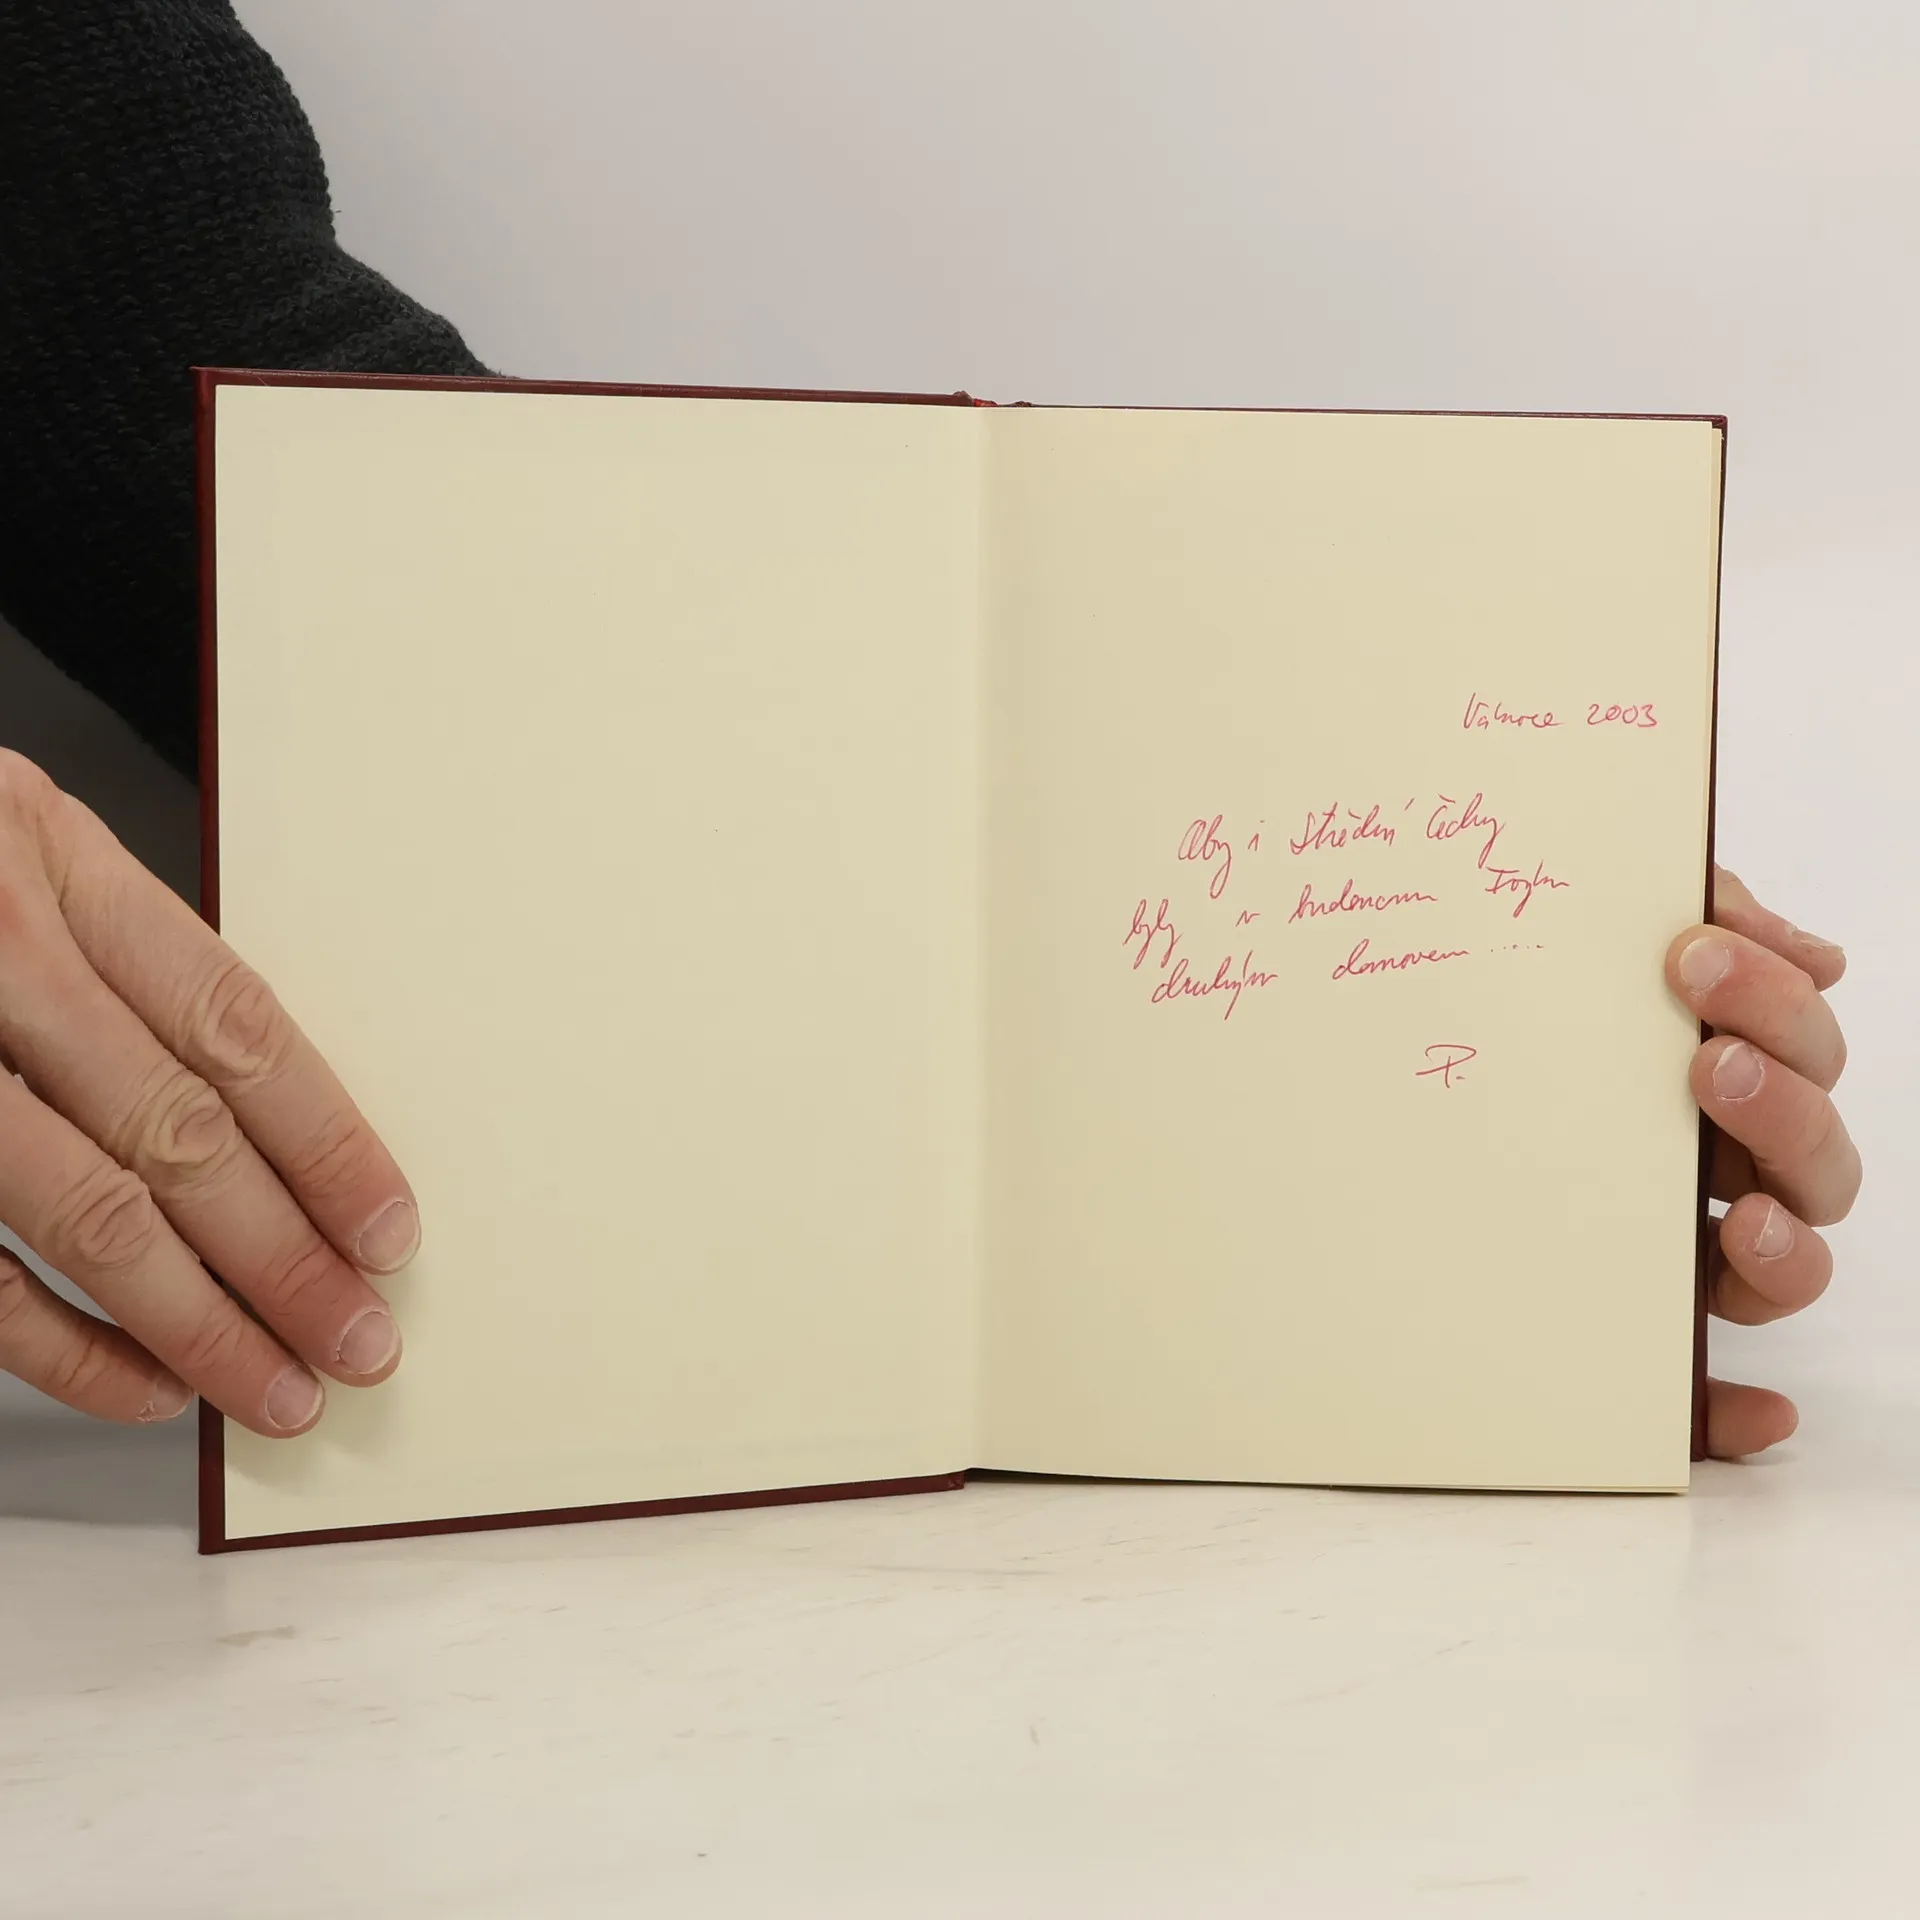 Vánoce 2003
Aby i Střední Čechy
byly v budoucnu
druhým domovem .....
P.